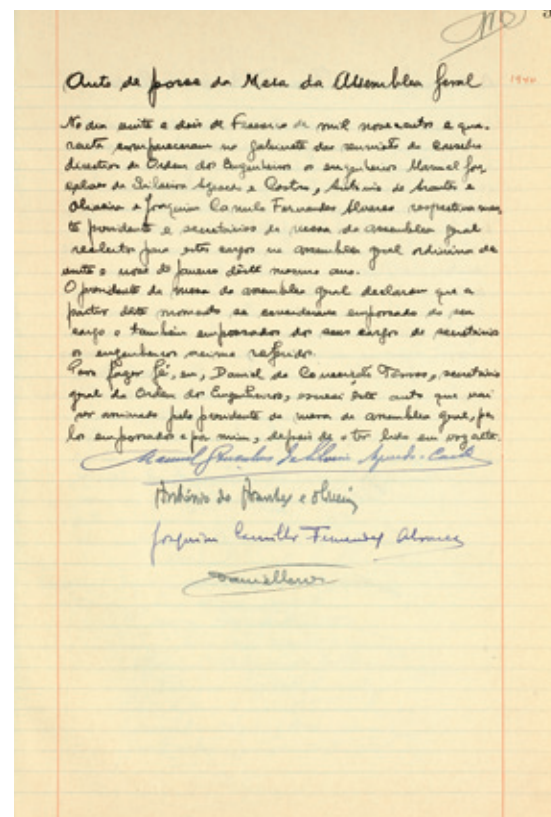 Auto de posse da Mesa da Assemblea Geral
1940
No dia vinte e dois de Fevereiro de mil novecentos e qua-
renta compareceram no gabinete das reuniões do conselho
directivo da Ordem dos Engenheiros os engenheiros Manuel Gon
çalves da Silveira Azevedo e Castro, Antonio de Arantes e
Oliveira e Joaquim Camilo Fernandes Alvares respectivamen
te presidente e secretários da mesa da assemblea geral
reeleitos para estes cargos na assemblea geral ordinária de
vinte e nove de Janeiro dêste mesmo ano.
O presidente da mesa da assemblea geral declarou que a
partir dêste momento se considerava empossado do seu
cargo e também empossados dos seus cargos de secretários
os engenheiros acima referidos.
Para fazer fé, eu, Daniel da Conceição secretário
geral da Ordem dos Engenheiros, escrevi êste auto que vai
ser assinado pelo presidente da mesa da assemblea geral, pe
los empossados e por mim, depois de o ter lido em voz alta.
Manuel Gonçalves da Silveira Azevedo e Castro
António de Arantes e Oliveira
Joaquim Camillo Fernandes Alvares